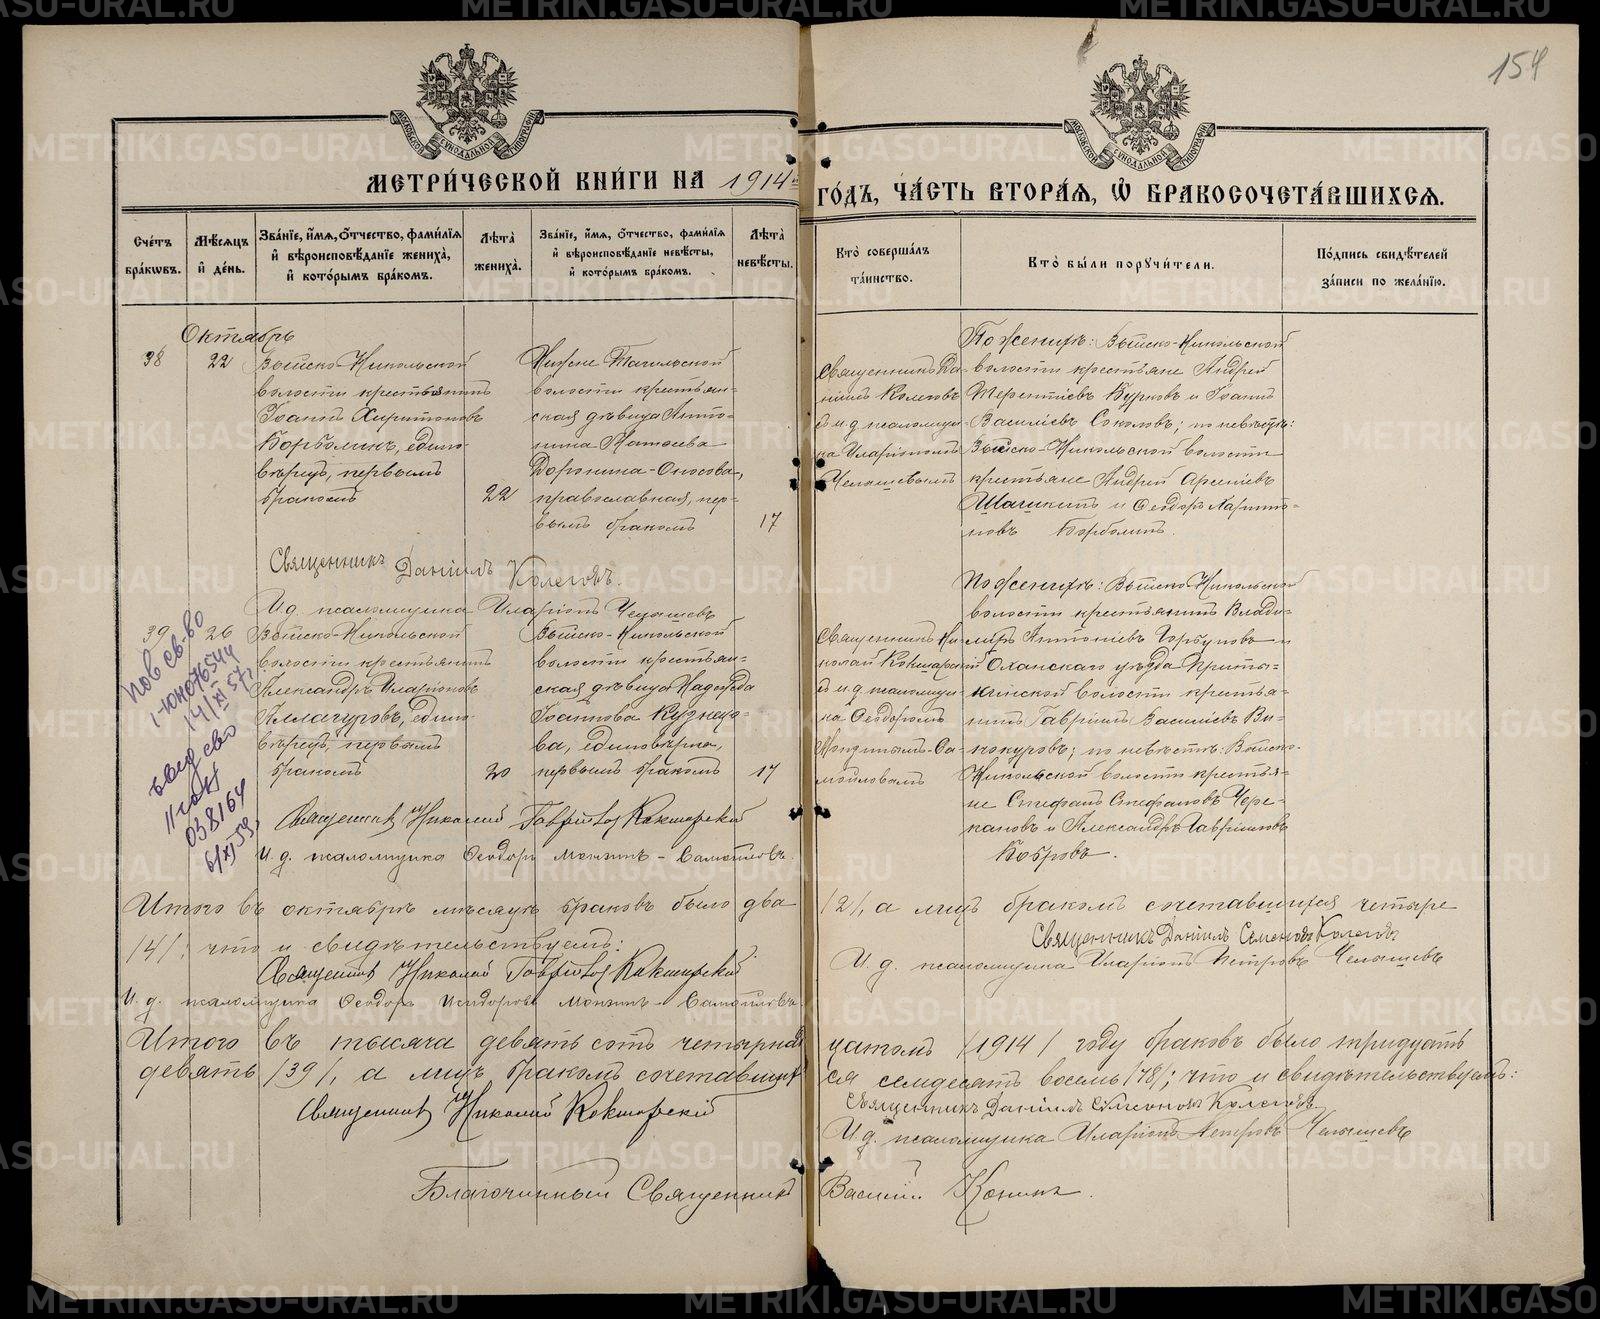 154
МЕТРИ́ЧЕСКОЙ КНИ́ГИ НА 1914 ГО́ДЪ, ЧА́СТЬ ВТОРА́Я, Ѽ БРАКОСОЧЕТА́ВШИХСЯ.
МОСКОВСКОЙ СѴНОДАЛЬНОЙ ТИПОГРАФІИ
МОСКОВСКОЙ СѴНОДАЛЬНОЙ ТИПОГРАФІИ
Сче́тъ бра́кѡвъ.
Мѣ́сяцъ и҆ де́нь.
Зва́нїе, и҆́мя, ѻ҆́тчество, фами́лїя и҆ вѣроисповѣ́данїе жениха̀, и҆ кото́рымъ бра́комъ.
Лѣ́та жениха̀.
Зва́нїе, и҆́мя, ѻ҆́тчество, фами́лїя и҆ вѣроисповѣ́данїе невѣ́сты, и҆ кото́рымъ бра́комъ.
Лѣ́та невѣ́сты.
Кто̀ соверша́лъ та́инство.
Кто̀ бы́ли порꙋчи́тели.
По́дпись свидѣ́телей за́писи по жела́нїю.
Октябрь
38
22
Выйско-Никольской
волости крестьянинъ
Іоаннъ Харитоновъ
Борболинъ, едино-
вѣрецъ, первымъ
бракомъ
22
Нижне Тагильской
волости крестьян-
ская дѣвица Анто-
нина Матѳеева
Доронина-Оносова,
православная, пер-
вымъ бракомъ
17
Священникъ Да-
ніилъ Колеговъ
съ и.д. псаломщи-
ка Иларіономъ
Челышевымъ
По женихѣ: Выйско-Никольской
волости крестьяне Андрей
Терентіевъ Бурковъ и Іоаннъ
Васильевъ Соколовъ; по невѣстѣ:
Выйско-Никольской волости
крестьяне Андрей Арсеніевъ
Шашкинъ и Ѳеодоръ Харито-
новъ Борболинъ.
Священникъ Даніилъ Колеговъ.
И.д. псаломщика Иларіонъ Челышевъ
39
26
Выйско-Никольской
волости крестьянинъ
Александръ Иларіоновъ
едино-
вѣрецъ, первымъ
бракомъ
20
Выйско-Никольской
волости крестьян-
ская дѣвица Надежда
Іоаннова Кузнецо-
ва, единовѣрка,
первымъ бракомъ
17
Священникъ Ни-
колай Кокшарскій
съ и.д. псаломщи-
ка Ѳеодоромъ
Мокинымъ-Са-
мойловымъ
По женихѣ: Выйско-Никольской
волости крестьянинъ Влади-
міръ Антоніевъ Горбуновъ и
Оханскаго уѣзда
волости крестья-
нинъ Гавріилъ Васильевъ Ви-
нокуровъ; по невѣстѣ: Выйско-
Никольской волости крестья-
не Стефанъ Стефановъ Чере-
пановъ и Александръ Гавріиловъ
Бобровъ.
пов св-во
14/XI 57г
038164
6/XI 59
Священникъ Николай Гавріиловъ Кокшарскій
И.д. псаломщика Ѳеодоръ Мокинъ-Самойловъ.
Итого въ октябрѣ мѣсяцѣ браковъ было два /2/, а лицъ бракомъ сочетавшихся четыре
/4/; что и свидѣтельствуемъ:
Священникъ Николай Гавріиловъ Кокшарскій
Священникъ Даніилъ Семеновъ Колеговъ
И.д. псаломщика Ѳеодоръ Исидоровъ Мокинъ-Самойловъ.
И.д. псаломщика Иларіонъ Петровъ Челышевъ
Итого въ тысяча девятьсотъ четырнадцатомъ /1914/ году браковъ было тридцать
девять /39/, а лицъ бракомъ сочетавшихся семьдесятъ восемь /78/; что и свидѣтельствуемъ:
Священникъ Николай Кокшарскій
Священникъ Даніилъ Симеоновъ Колеговъ
И.д. псаломщика Иларіонъ Петровъ Челышевъ
Благочинный Священникъ Василій Конинъ.
METRIKI.GASO-URAL.RU